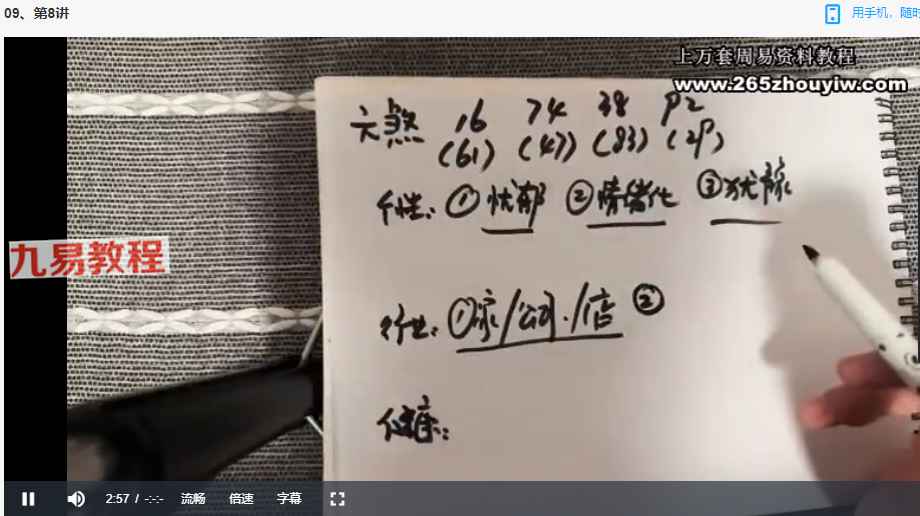 09、第8讲
用手机、随时
上万套周易资料教程
www.265zhouyiw.com
六煞 16 74 38 92
(61) (47) (83) (29)
个性: ①忧郁 ②情绪化 ③犹豫
九易教程
行业: ①家/公司./店 ②
健康:
2:57 / -:-:- 流畅 倍速 字幕